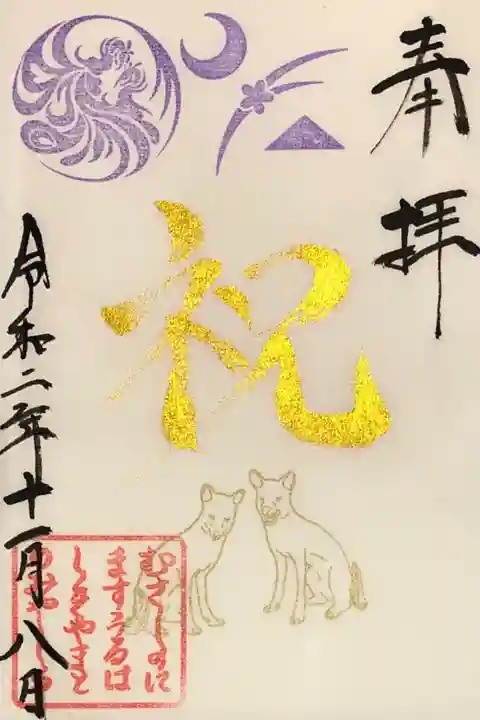 奉拝
祝
令和二年十一月八日
むさしのに
ますうるは
しきやさと